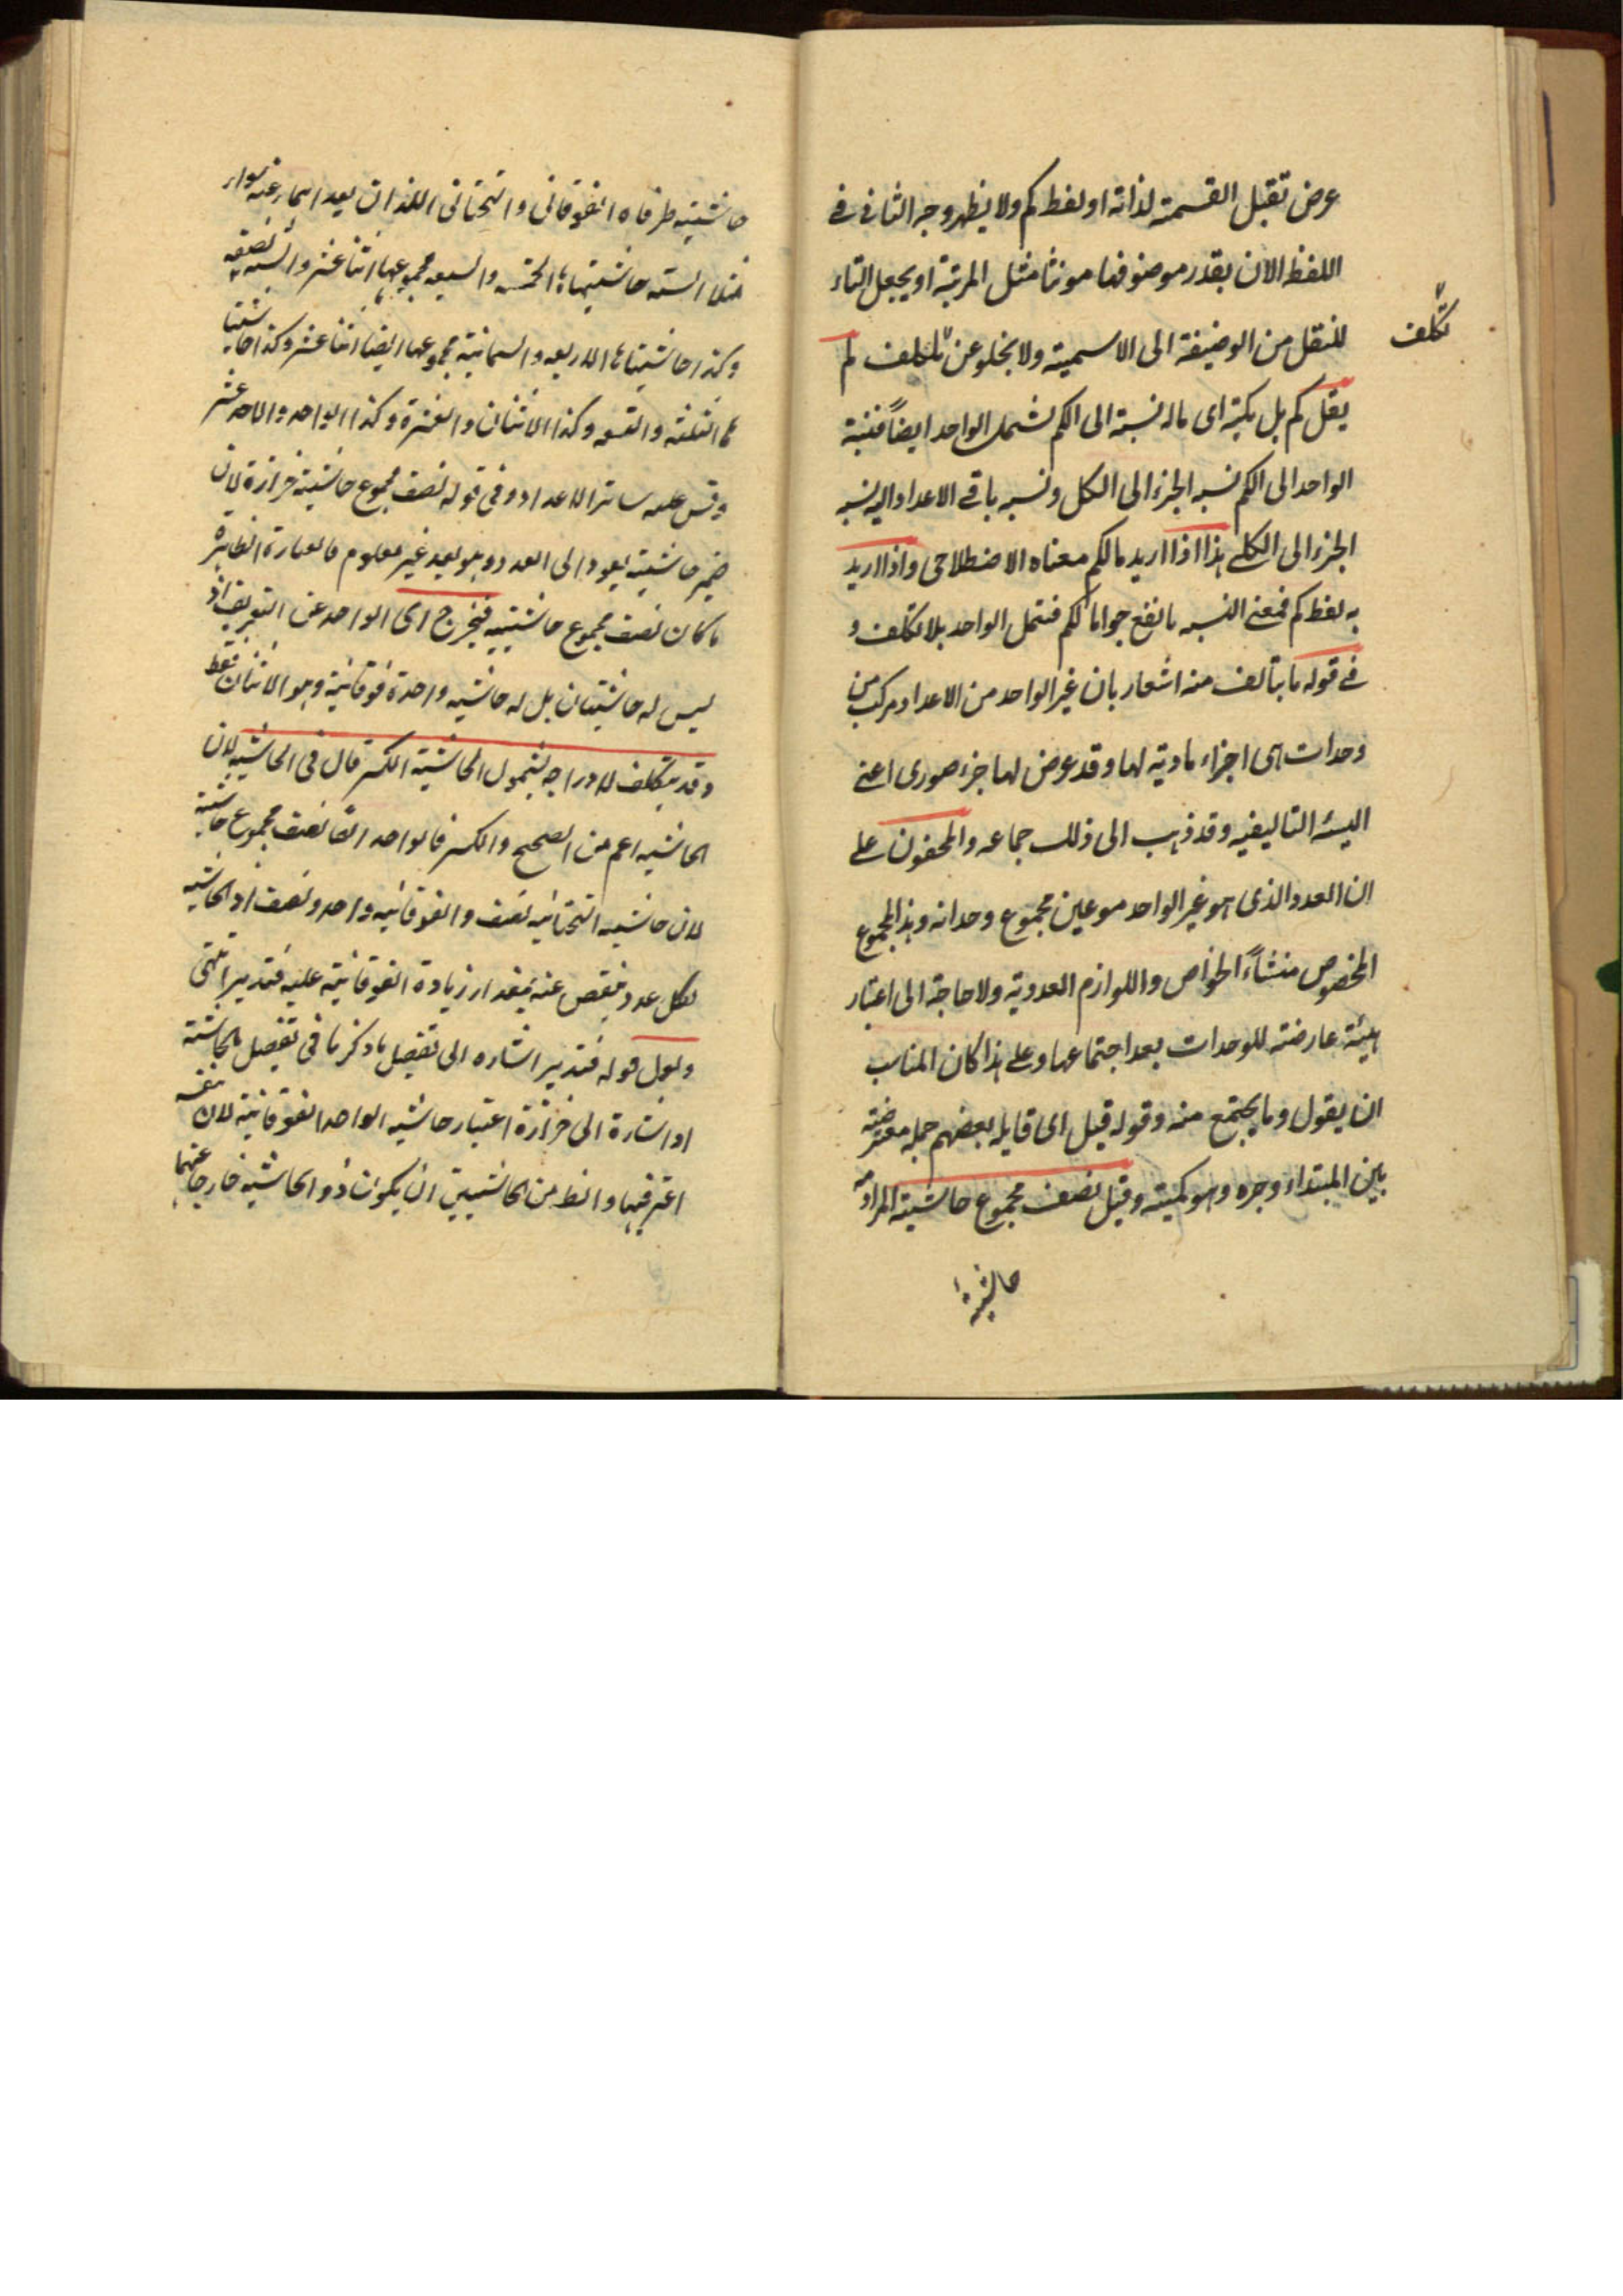 عرض تقبل القسمة لذاته او لفظ كم ولا يظهر وجه التانى فى
اللفظ الا ان بقدر موصوفها مونثا مثل المرتبة او يجعل التاء
للنقل من الوصفية الى الاسمية ولا يخلو عن تكلف لم
تكلف
يقل كم بل بكمية اى ماله نسبة الى الكم لشمل الواحد ايضاً فنسبة
الواحد الى الكم نسبه الجزء الى الكل ونسبه باقى الاعداد اليه نسبه
الجزء الى الكلى هذا اذا اريد بالكم معناه الاصطلاحى واذا اريد
به لفظ كم فمعنى النسبه ما يقع جوابا لكم فتمل الواحد بلا تكلف و
فى قوله ما يتالف منه اشعار بان غير الواحد من الاعداد مركب من
وحدات هى اجزاء مادية لها وقد عرض لها جزء صورى اعنى
الهيئه التاليفيه وقد ذهب الى ذلك جماعه والمحققون على
ان العدد الذى هو غير الواحد هو عين مجموع وحداته وهذا المجموع
المخصوص منشاءً الخواص واللوازم العددية ولا حاجة الى اعتبار
هيئة عارضة للوحدات بعد اجتماعها وعلى هذا كان المناسب
ان يقول وما يجتمع منه وقوله قيل اى قايله بعضهم جمله معترضة
بين المبتداء وخبره وهو كمية وقيل نصف مجموع حاشيتيه المراد من
حاشيتيه
حاشيتيه طرفاه الفوقانى والتحتانى اللذان بعداهما عنه سواء
مثلا الستة حاشيتاها الخمسه والسبعه مجموعهما اثنا عشر والسته نصفه
وكذا حاشيتاها الاربعه والثمانية مجموعهما ايضا اثنا عشر وكذا حاشيتا
ها الثلثه والتسعه وكذا الاثنان والعشرة وكذا الواحد والاحد عشر
وقس عليه سائر الاعداد وفى قوله نصف مجموع حاشيتيه خزازة لان
ضمير حاشيتيه يعود الى العدد وهو بعد غير معلوم فالعبارة الظاهره
ما كان نصف مجموع حاشيتيه فيخرج اى الواحد عن التعريف اذ
ليس له حاشيتان بل له حاشيه واحدة فوقانية وهو الاثنان فقط
وقد يتكلف لادراجه بشمول الحاشية الكسر قال فى الحاشيه لان
الحاشيه اعم من الصحيح والكسر فالواحد ايضا نصف مجموع حاشيتيه
لان حاشيته التحتانيه نصف والفوقانيه واحد ونصف اذ الحاشيه
لكل عدد ينقص عنه بمقدار زيادة الفوقانية عليه فتدبر انتهى
ولعل قوله فتدبر اشاره الى تفصيل ما ذكرنا فى تفصيل الحاشية
او اشارة الى خزازة اعتبار حاشيه الواحد الفوقانية لان نفسه
اعتبر فيها والظ من الحاشيتين ان يكون ذو الحاشيه خارجا عنهما